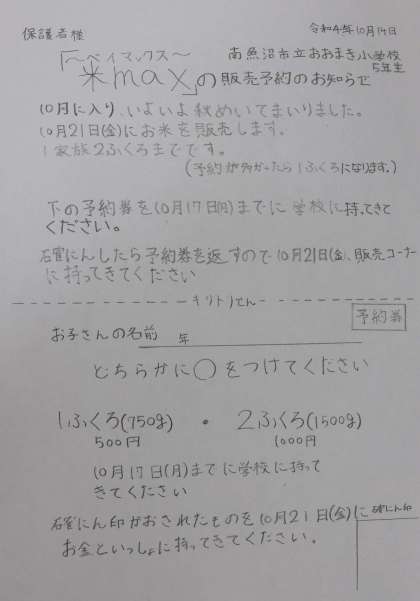 保護者様
令和4年10月14日
「～べイマックス～
米max」の販売予約のお知らせ
南魚沼市立おおまき小学校
5年生
10月に入り、いよいよ秋めいてまいりました。
10月21日(金)にお米を販売します。
1家族2ふくろまでです。
(予約が多かったら1ふくろになります。)
下の予約券を10月17日(月)までに学校に持ってきて
ください。
確にんしたら予約券を返すので10月21日(金)、販売コーナー
に持ってきてください
キリトリせん
予約券
お子さんの名前 年
どちらかに〇をつけてください
1ふくろ(750g) ・ 2ふくろ(1500g)
500円 1000円
10月17日(月)までに学校に持って
きてください
確にん印がおされたものを10月21日(金)に
お金といっしょに持ってきてください。
確にん印